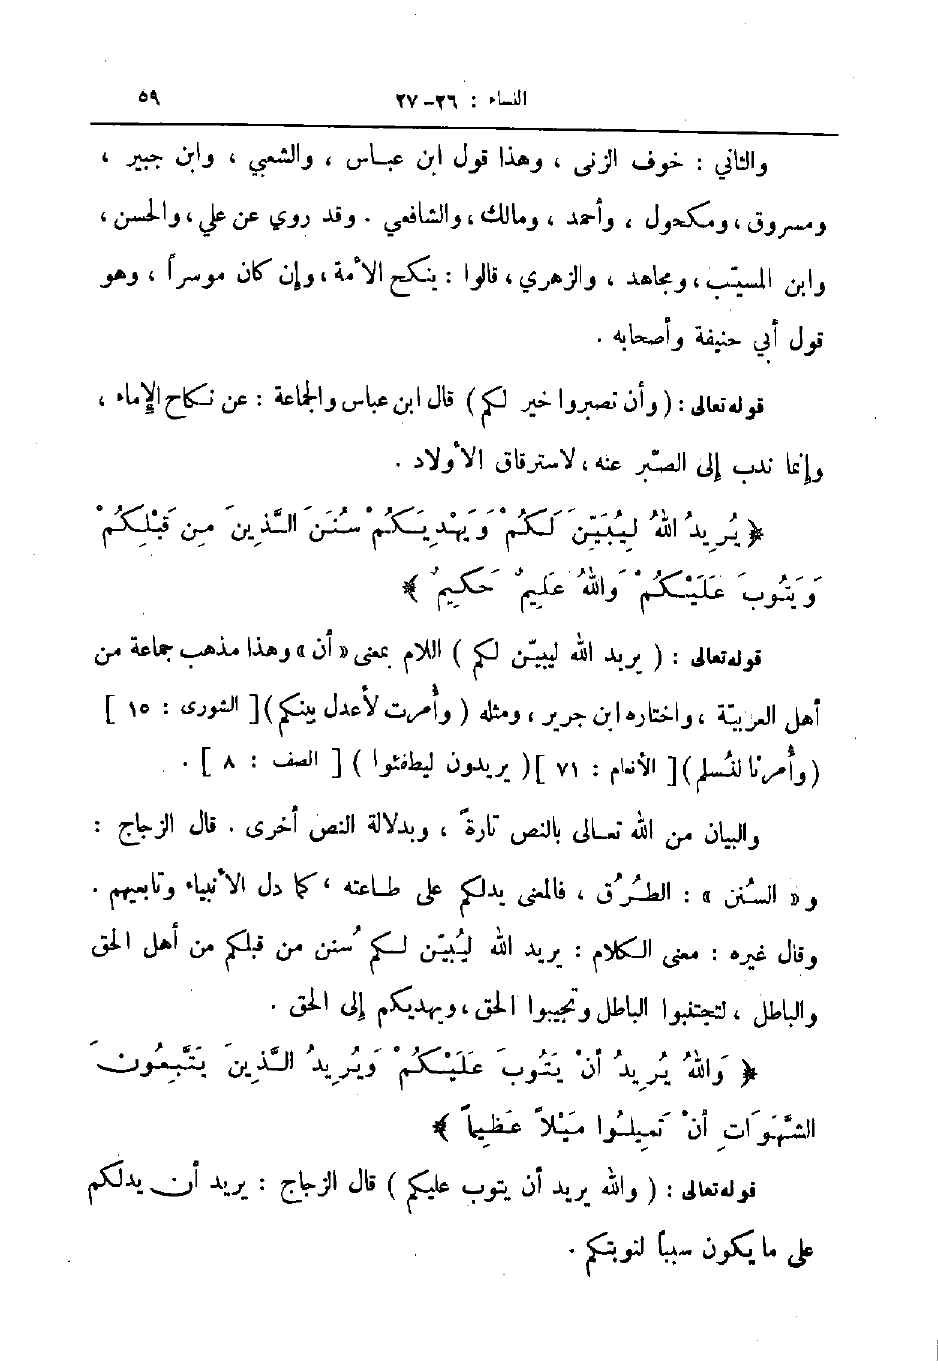 النساء : ٢٦-٢٧ ٥٩
والثاني : خوف الزنى ، وهذا قول ابن عباس ، والشعبي ، وابن جبير ،
ومسروق ، ومكحول ، وأحمد ، ومالك ، والشافعي . وقد روي عن علي ، والحسن ،
وابن المسيّب ، ومجاهد ، والزهري ، قالوا : ينكح الأمة ، وإن كان موسراً ، وهو
قول أبي حنيفة وأصحابه .
قوله تعالى : ( وأن تصبروا خير لكم ) قال ابن عباس والجماعة : عن نكاح الإماء ،
وإنما ندب إلى الصّبر عنه ، لاسترقاق الأولاد .
﴿ يُرِيدُ اللهُ لِيُبَيِّنَ لَكُمْ وَيَهْدِيَكُمْ سُنَنَ الَّذِينَ مِن قَبْلِكُمْ
وَيَتُوبَ عَلَيْكُمْ وَاللهُ عَلِيمٌ حَكِيمٌ ﴾
قوله تعالى : ( يريد الله ليبيّن لكم ) اللام بمعنى « أن » وهذا مذهب جماعة من
أهل العربيّة ، واختاره ابن جرير ، ومثله ( وأُمرت لأعدل بينكم ) [ الشورى : ١٥ ]
( وأُمرْنا لنُسلم ) [ الأنعام : ٧١ ] ( يريدون ليطفئوا ) [ الصف : ٨ ] .
والبيان من الله تعالى بالنص تارةً ، وبدلالة النص أخرى . قال الزجاج :
و « السُنن » : الطُرُق ، فالمعنى يدلكم على طاعته ، كما دل الأنبياء وتابعيهم .
وقال غيره : معنى الكلام : يريد الله ليُبيّن لكم سُنن من قبلكم من أهل الحق
والباطل ، لتجتنبوا الباطل وتجيبوا الحق ، ويهديكم إلى الحق .
﴿ وَاللهُ يُرِيدُ أنْ يَتُوبَ عَلَيْكُمْ وَيُرِيدُ الَّذِينَ يَتَّبِعُونَ
الشَّهَوَاتِ أنْ تَمِيلُوا مَيْلاً عَظِيماً ﴾
قوله تعالى : ( والله يريد أن يتوب عليكم ) قال الزجاج : يريد أن يدلكم
على ما يكون سبباً لتوبتكم .